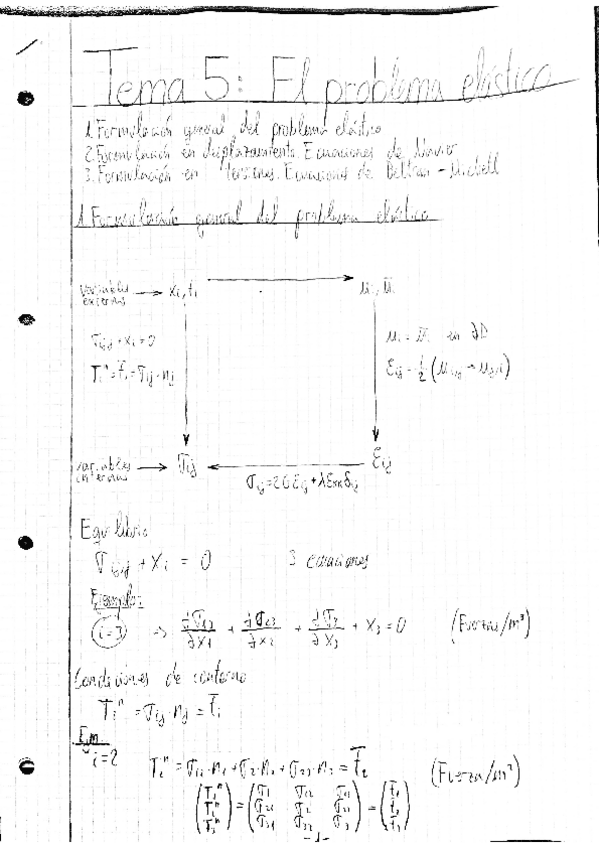 Tema 5: El problema elástico
1. Formulación general del problema elástico
2. Formulación en desplazamiento. Ecuaciones de Navier
3. Formulación en tensiones. Ecuaciones de Beltran - Michell
1. Formulación general del problema elástico
variables externas → Xi, ti → ui, ūi
σij,j + Xi = 0
Tiⁿ = t̄i = σij · nj
ui = ūi en ∂D
εij = 1/2 (ui,j + uj,i)
variables internas → σij ← εij
σij = 2Gεij + λεkk δij
Equilibrio
σij,j + Xi = 0 3 ecuaciones
Ejemplo:
i=3 → ∂σ13/∂x1 + ∂σ23/∂x2 + ∂σ3/∂x3 + X3 = 0 (Fuerzas/m³)
Condiciones de contorno
Tiⁿ = σij · nj = t̄i
Ejm.
i=2
(Fuerza/m²)
-1-